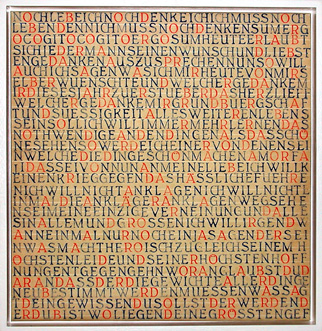 NOCHLEBEICHNOCHDENKEICHICHMUSSNOCH
LEBENDENNICHMUSSNOCHDENKENSUMERG
OCOGITOCOGITOERGOSUMHEUTEERLAUBT
SICHJEDERMANNSEINENWUNSCHUNDLIEBST
ENGEDANKENAUSZUSPRECHENNUNSOWILL
AUCHICHSAGENWASICHMIRHEUTEVONMIRS
ELBERWÜNSCHTEUNDWELCHERGEDANKEM
IRDIESESJAHRZUERSTÜBERDASHERZLIEF
WELCHERGEDANKEMIRGRUNDBÜRGSCHAF
TUNDSÜSSIGKEITALLESWEITERENLEBENS
SEINSOLLICHWILLIMMERMEHRLERNENDAS
NOTHWENDIGEANDENDINGENALSDASSCHÖ
NESEHENSOWERDEICHEINERVONDENENSEIN
WELCHEDIEDINGESCHÖNMACHENAMORFA
TIDASSEIVONNUNANMEINELIEBEICHWILLK
EINENKRIEGGEGENDASHÄSSLICHEFÜHRE
NICHWILLNICHTANKLAGENICHWILLNICHTEI
NMALDIEANKLÄGERANKLAGENWEGSEHE
NSEIMEINEEINZIGEVERNEINUNGUNDALLE
SINALLEMUNDGROSSENICHWILLIRGENDW
ANNEINMALNURNOCHEINJASAGENDERSEI
NWASMACHTHEROISCHZUGLEICHSEINEMH
ÖCHSTENLEIDEUNDSEINERHÖCHSTENHOFF
NUNGENTGEGENGEHNWORANGLAUBSTDUD
ARANDASSDIEGEWICHTEALLERDINGE
NEUBESTIMMTWERDENMÜSSENWASSAG
TDEINGEWISSENDUSOLLSTDERWERDEND
ERDUBISTWOLIEGENDEINEGRÖSSTENGEF